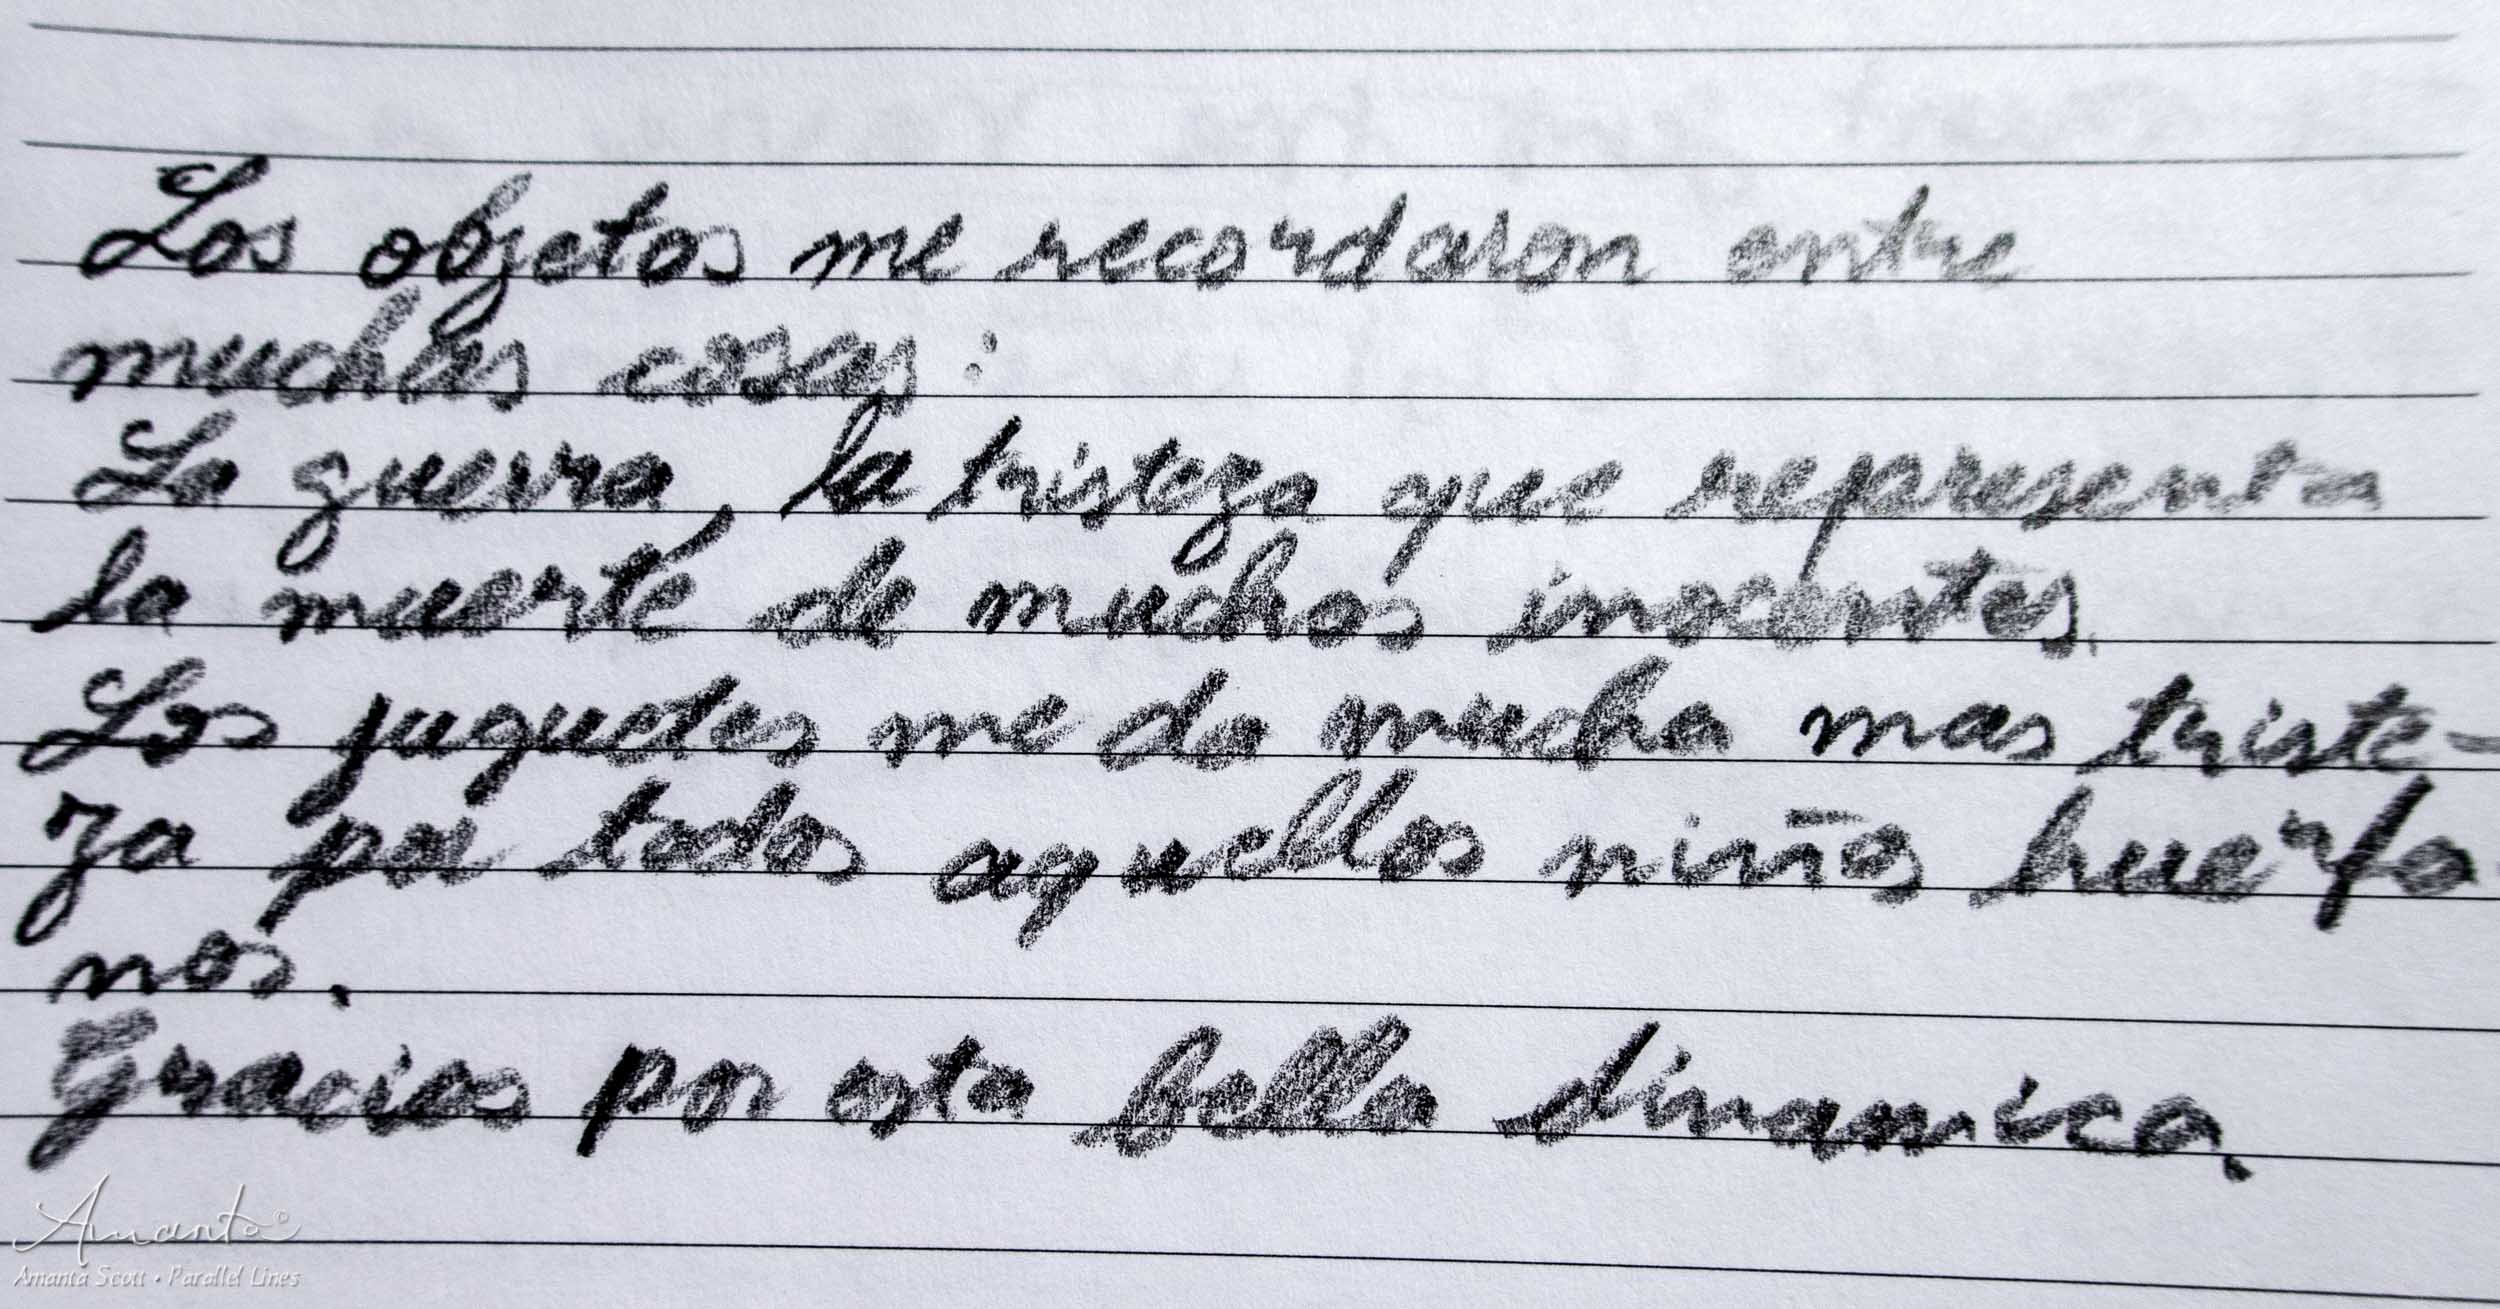 Los objetos me recordaron entre
muchas cosas:
La guerra, la tristeza que representa
la muerte de muchos inocentes.
Los juguetes me da mucha mas triste-
za por todos aquellos niños huerfa-
nos.
Gracias por esta bella dinamica.
Amanta©
Amanta Scott • Parallel Lines